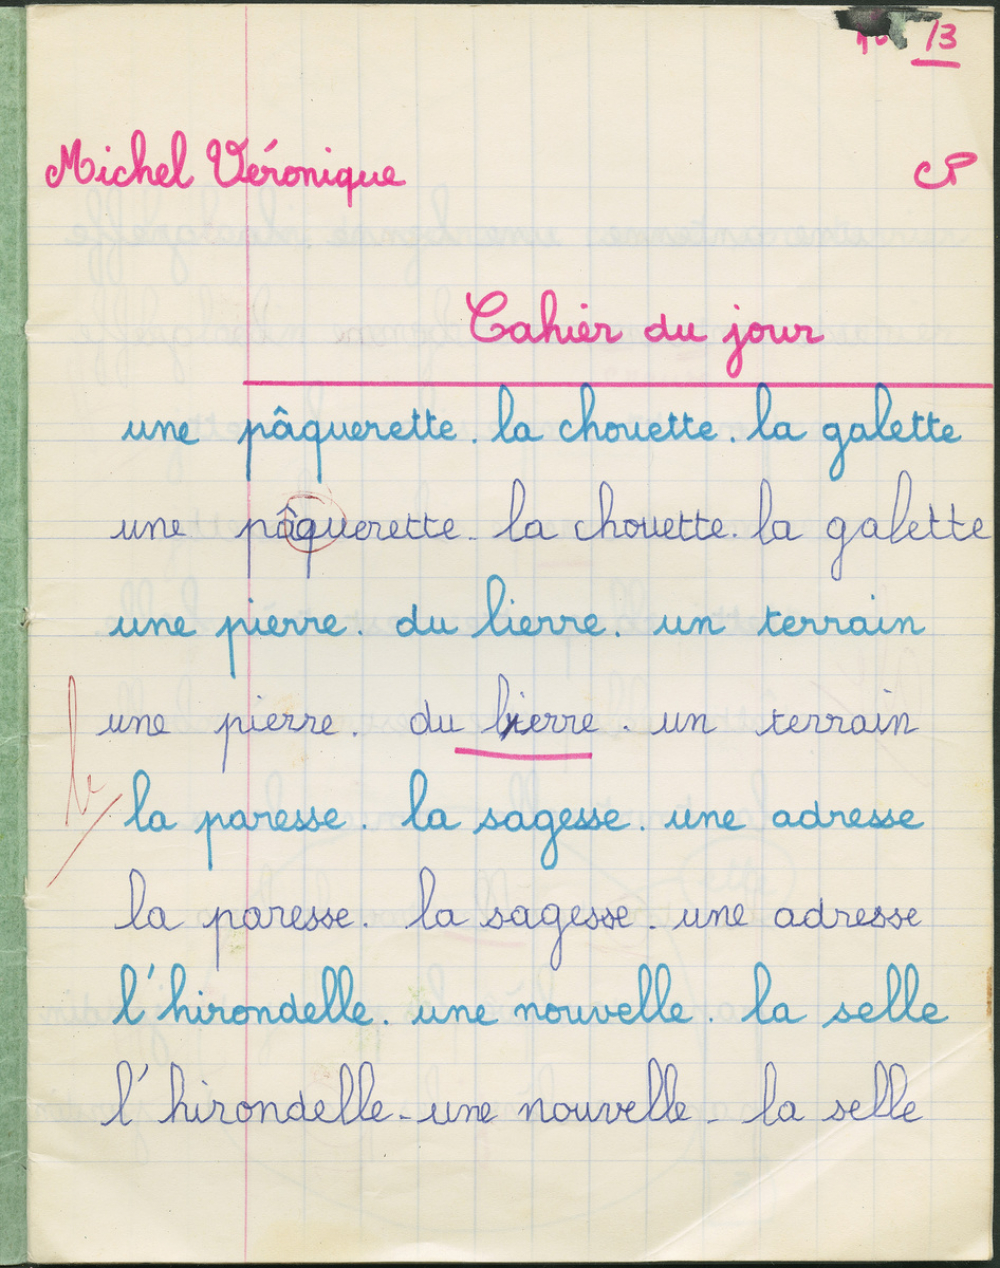 13
Michel Véronique CP
Cahier du jour
une pâquerette. la chouette. la galette
une pâquerette. la chouette. la galette
une pierre. du lierre. un terrain
une pierre. du lierre. un terrain
la paresse. la sagesse. une adresse
la paresse. la sagesse. une adresse
l'hirondelle. une nouvelle. la selle
l'hirondelle - une nouvelle - la selle